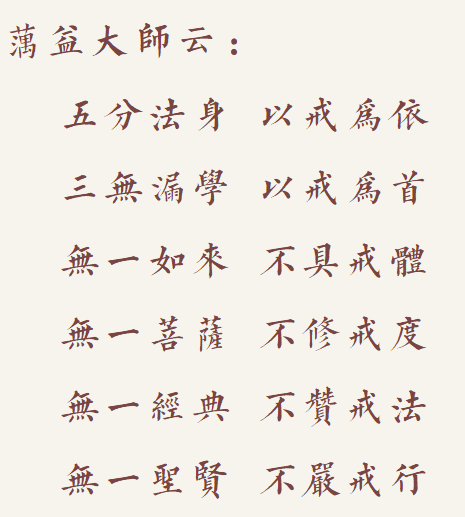 蕅益大師云：
五分法身 以戒為依
三無漏學 以戒為首
無一如來 不具戒體
無一菩薩 不修戒度
無一經典 不贊戒法
無一聖賢 不嚴戒行